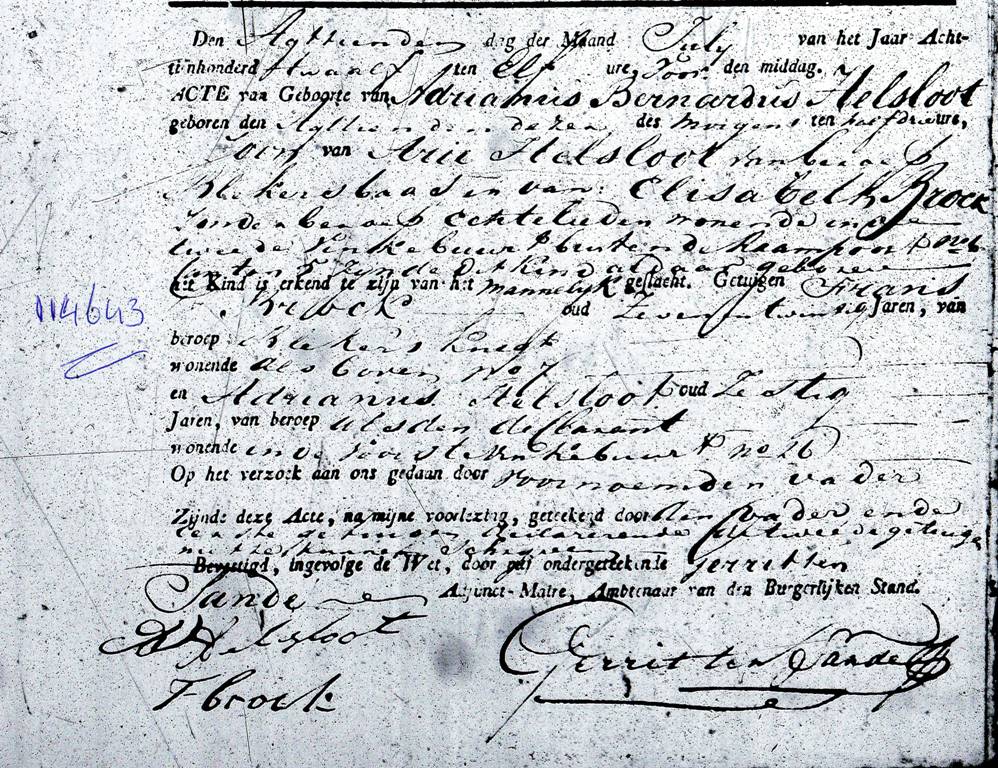 Den Agttienden dag der Maand July van het Jaar Acht-
tienhonderd twaalf ten Elf ure, voor den middag.
ACTE van Geboorte van Adrianus Bernardus Helsloot
geboren den Agttienden dezer, des morgens ten half drie ure,
Zoon van Arie Helsloot van beroep
Blekersbaas en van Elisabeth Brock
zonder beroep Echtelieden wonende in de
tweede Vinkebuurt buiten de Raampoort
Canton 5 Zynde dit Kind aldaar geboren
het Kind is erkend te zijn van het mannelyk geslacht. Getuigen Frans
Brock oud Zeven en twintig Jaren, van
beroep Blekers Knegt
wonende als boven no 7
en Adrianus Helsloot oud Zestig
Jaren, van beroep als den declarant
wonende in de Vinkebuurt no 26
Op het verzoek aan ons gedaan door voornoemden vader
Zijnde deze Acte, na mijne voorlezing, geteekend door den vader en de
eerste getuigen declarerende de tweede getuige
niet te kunnen Schryven
Bevestigd, ingevolge de Wet, door mij ondergeteekende Gerrit ten
Sande Adjunct-Maire, Ambtenaar van den Burgerlijken Stand.
114643
A Helsloot
F brock
Gerrit ten Sande